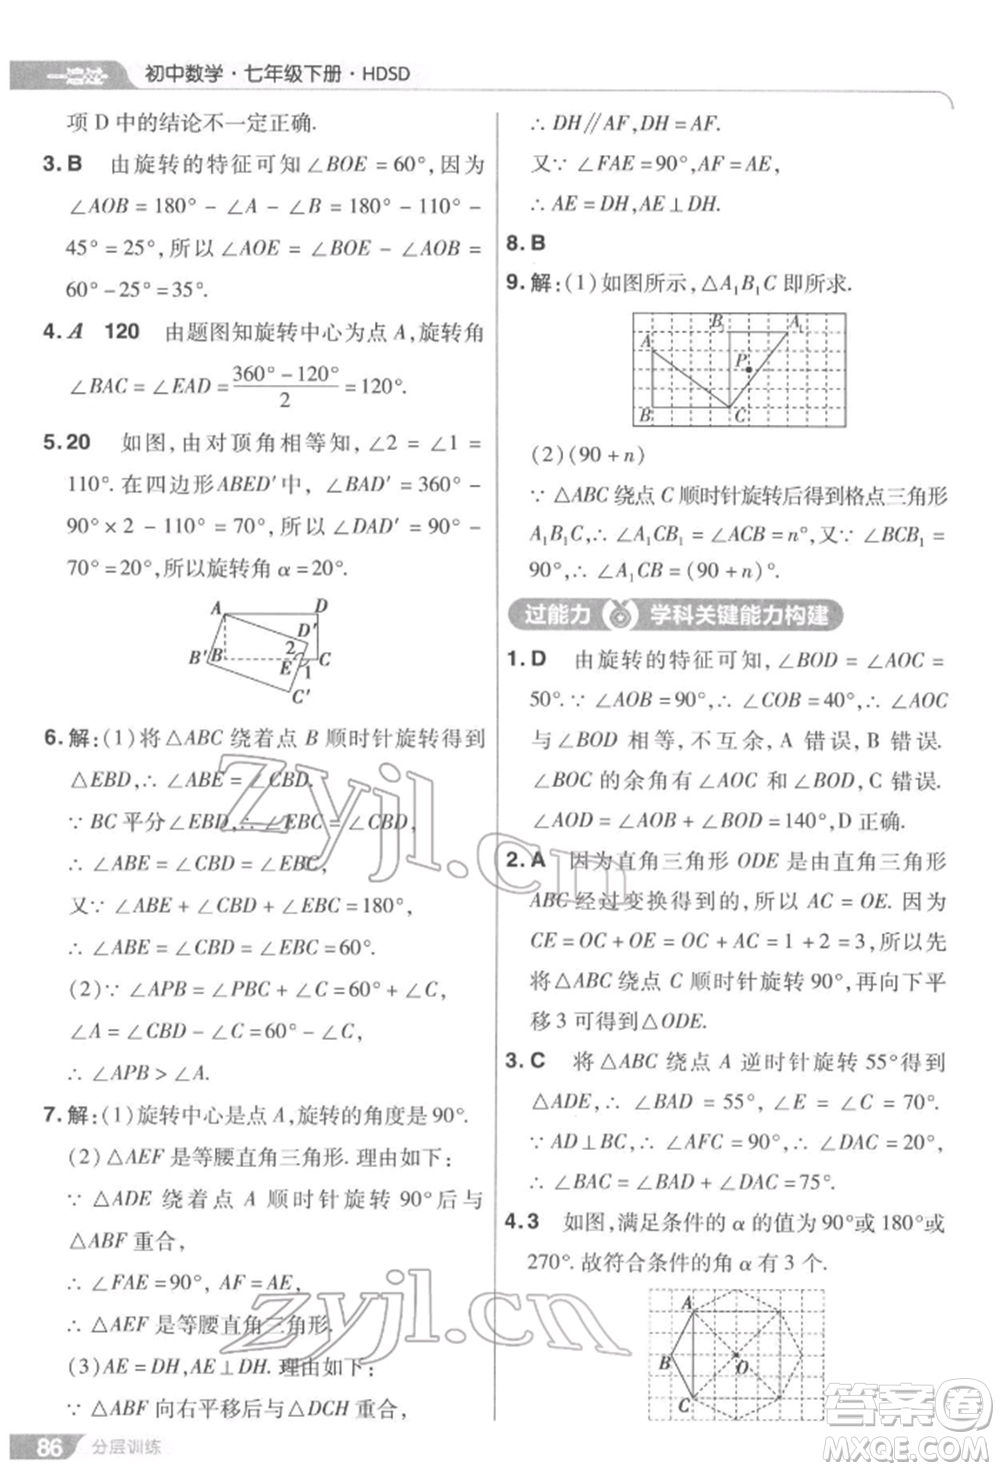 一遍过 初中数学·七年级下册·HDSD
项 D 中的结论不一定正确.
3. B 由旋转的特征可知∠BOE=60°,因为
∠AOB=180°-∠A-∠B=180°-110°-
45°=25°,所以∠AOE=∠BOE-∠AOB=
60°-25°=35°.
4. A 120 由题图知旋转中心为点 A,旋转角
∠BAC=∠EAD=(360°-120°)/2=120°.
5. 20 如图,由对顶角相等知,∠2=∠1=
110°. 在四边形ABED′中,∠BAD′=360°-
90°×2-110°=70°,所以∠DAD′=90°-
70°=20°,所以旋转角 α=20°.
A D
D′
2
B′ B E C
1
C′
6. 解:(1)将△ABC 绕着点 B 顺时针旋转得到
△EBD,∴∠ABE=∠CBD.
∵BC平分∠EBD,∴∠EBC=∠CBD,
∴∠ABE=∠CBD=∠EBC,
又∵∠ABE+∠CBD+∠EBC=180°,
∴∠ABE=∠CBD=∠EBC=60°.
(2)∵∠APB=∠PBC+∠C=60°+∠C,
∠A=∠CBD-∠C=60°-∠C,
∴∠APB>∠A.
7. 解:(1)旋转中心是点 A,旋转的角度是 90°.
(2)△AEF 是等腰直角三角形. 理由如下:
∵△ADE 绕着点 A 顺时针旋转 90°后与
△ABF 重合,
∴∠FAE=90°,AF=AE,
∴△AEF 是等腰直角三角形.
(3)AE=DH,AE⊥DH. 理由如下:
∵△ABF 向右平移后与△DCH 重合,
86 分层训练
∴DH∥AF,DH=AF.
又∵∠FAE=90°,AF=AE,
∴AE=DH,AE⊥DH.
8. B
9. 解:(1)如图所示,△A₁B₁C 即所求.
B₁ A₁
A
P
B C
(2)(90+n)
∵△ABC 绕点 C 顺时针旋转后得到格点三角形
A₁B₁C,∴∠A₁CB₁=∠ACB=n°,又∵∠BCB₁=
90°,∴∠A₁CB=(90+n)°.
过能力 学科关键能力构建
1. D 由旋转的特征可知,∠BOD=∠AOC=
50°.∵∠AOB=90°,∴∠COB=40°,∴∠AOC
与∠BOD 相等,不互余,A 错误,B 错误.
∠BOC 的余角有∠AOC 和∠BOD,C 错误.
∠AOD=∠AOB+∠BOD=140°,D 正确.
2. A 因为直角三角形 ODE 是由直角三角形
ABC 经过变换得到的,所以 AC=OE. 因为
CE=OC+OE=OC+AC=1+2=3,所以先
将△ABC 绕点 C 顺时针旋转 90°,再向下平
移 3 可得到△ODE.
3. C 将△ABC 绕点 A 逆时针旋转 55°得到
△ADE,∴∠BAD=55°,∠E=∠C=70°.
∵AD⊥BC,∴∠AFC=90°,∴∠DAC=20°,
∴∠BAC=∠BAD+∠DAC=75°.
4. 3 如图,满足条件的 α 的值为 90°或 180°或
270°. 故符合条件的角 α 有 3 个.
A
B O
C
Zyjl.cn
zyjl.cn
答案圈
MXQE.COM